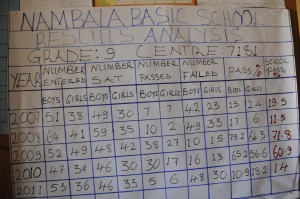 NAMBALA BASIC SCHOOL
RESULTS ANALYSIS
GRADE: 9 CENTRE 7181
YEAR NUMBER ENTERED NUMBER SAT NUMBER PASSED NUMBER FAILED PASS % SCHOOL PASS %
BOYS GIRLS BOYS GIRLS BOYS GIRLS BOYS GIRLS BOYS GIRLS
2007 51 38 49 30 7 7 42 23 15 24 19.5
2008 64 41 59 35 10 2 49 33 17 6 11.5
2009 52 49 48 42 38 27 10 1.5 79.2 71.8
2010 47 39 46 30 30 17 16 13 65.2 56.6 60.9
2011 53 36 46 33 5 6 48 30 10.9 18.2 14